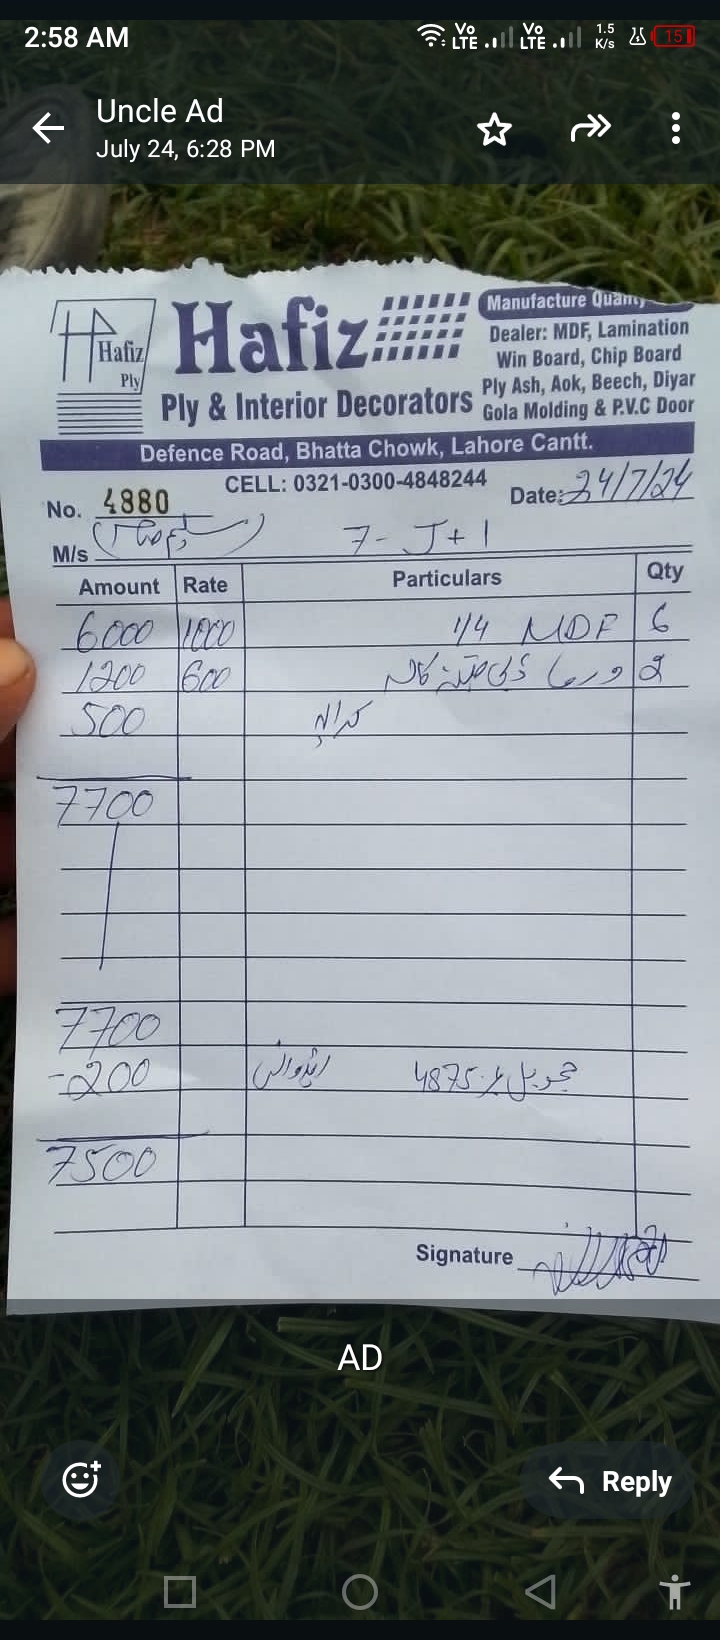 2:58 AM
Vo LTE Vo LTE 1.5 K/s 15
Uncle Ad
July 24, 6:28 PM
Hafiz Ply
Hafiz
Ply & Interior Decorators
Manufacture Quality
Dealer: MDF, Lamination
Win Board, Chip Board
Ply Ash, Aok, Beech, Diyar
Gola Molding & P.V.C Door
Defence Road, Bhatta Chowk, Lahore Cantt.
CELL: 0321-0300-4848244
No. 4880
Date: 24/7/24
M/s 7-J+1
Amount Rate Particulars Qty
6000 1000 1/4 MDF 6
1200 600 2
500 کرایہ
7700
7700
-200 4875
7500
Signature
AD
Reply